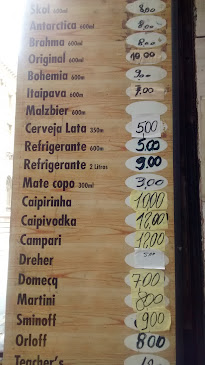 Skol 600ml 8,00
Antarctica 600ml 8,00
Brahma 600ml 8,00
Original 600ml 10,00
Bohemia 600m 9,00
Itaipava 600m 7,00
Malzbier 600m
Cerveja Lata 350m 500
Refrigerante 600m 5,00
Refrigerante 2 Litros 9,00
Mate copo 300ml 3,00
Caipirinha 1000
Caipivodka 12,00
Campari 12,00
Dreher
Domecq 700
Martini 800
Sminoff 900
Orloff 800
Teacher's